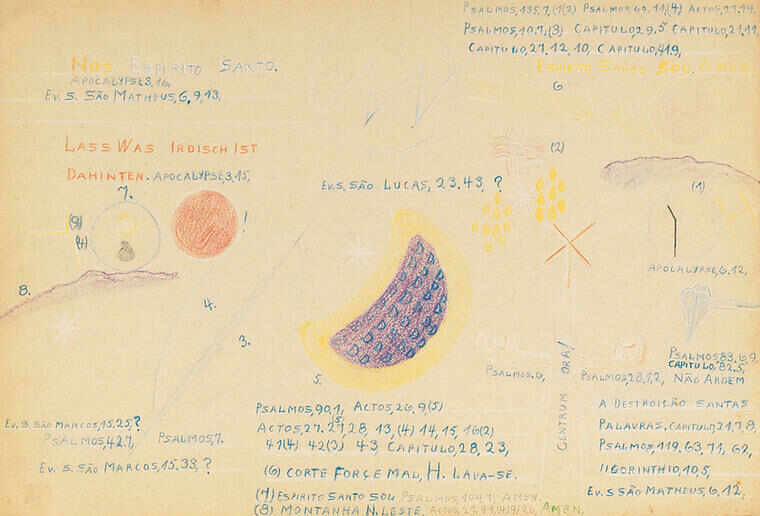 PSALMOS,135,7,(1(2) PSALMOS 69,11,(4) ACTOS,27,14,
PSALMOS,107,(3) CAPITULO,29,5, CAPITULO,21,11,
CAPITULO,27,12,10, CAPITULO,41,9,
NOS ESPIRITO SANTO.
ESPIRITO
APOCALYPSE,3,16,
6
EV. S. SÃO MATHEUS,6,9,13,
LASS WAS IRDISCH IST
(2)
DAHINTEN. APOCALYPSE,3,15,
EV.S. SÃO LUCAS, 23,43, ?
(1)
7.
!
(9)
(4)
APOCALYPSE,6,12,
8.
4.
3.
5.
CENTRUM ORA!
PSALMOS,83,6,9,
CAPITULO,82,5,
PSALMOS,9,
PSALMOS,28,1,2, NÃO ARDEM
A DESTROIÇÃO SANTAS
PALAVRAS, CAPITULO,21,7,8,
PSALMOS,119,63,71, 62,
II CORINTHIO,10,5,
EV. S SÃO MATHEUS,6,12,
EV. S. SÃO MARCOS,15,25,?
PSALMOS,42,7, PSALMOS,7,
EV. S. SÃO MARCOS,15,33, ?
PSALMOS,90,1, ACTOS,26,9(5)
ACTOS,27,27,28, 13,(4) 14, 15, 16(2)
41(4) 42(3) 43, CAPITULO,28,23,
(6) CORTE FORÇE MAU, H. LAVA-SE.
(7) ESPIRITO SANTO SOU PSALMOS,104,1, AMEN.
(8) MONTANHA N. LESTE, AMEN.